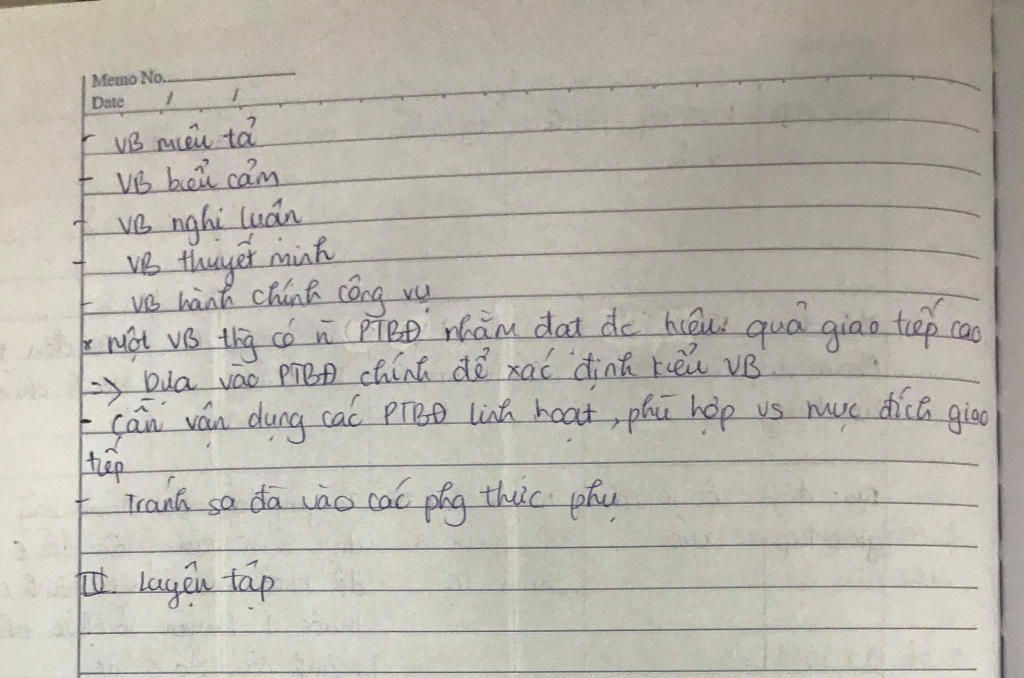 Memo No.
Date / /
- VB miêu tả
- VB biểu cảm
- VB nghị luận
- VB thuyết minh
- VB hành chính công vụ
* Một VB thg có n̄ PTBĐ nhằm đạt đc hiệu quả giao tiếp cao
=> Dựa vào PTBĐ chính để xác định kiểu VB
- Cần vận dụng các PTBĐ linh hoạt, phù hợp vs mục đích giao
tiếp
- Tránh sa đà vào các phg thức phụ
IV. Luyện tập